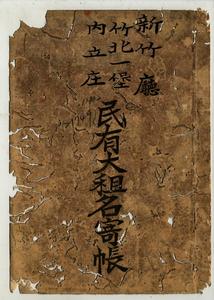 新竹廳
竹北一堡
內立庄
民有大租名寄帳